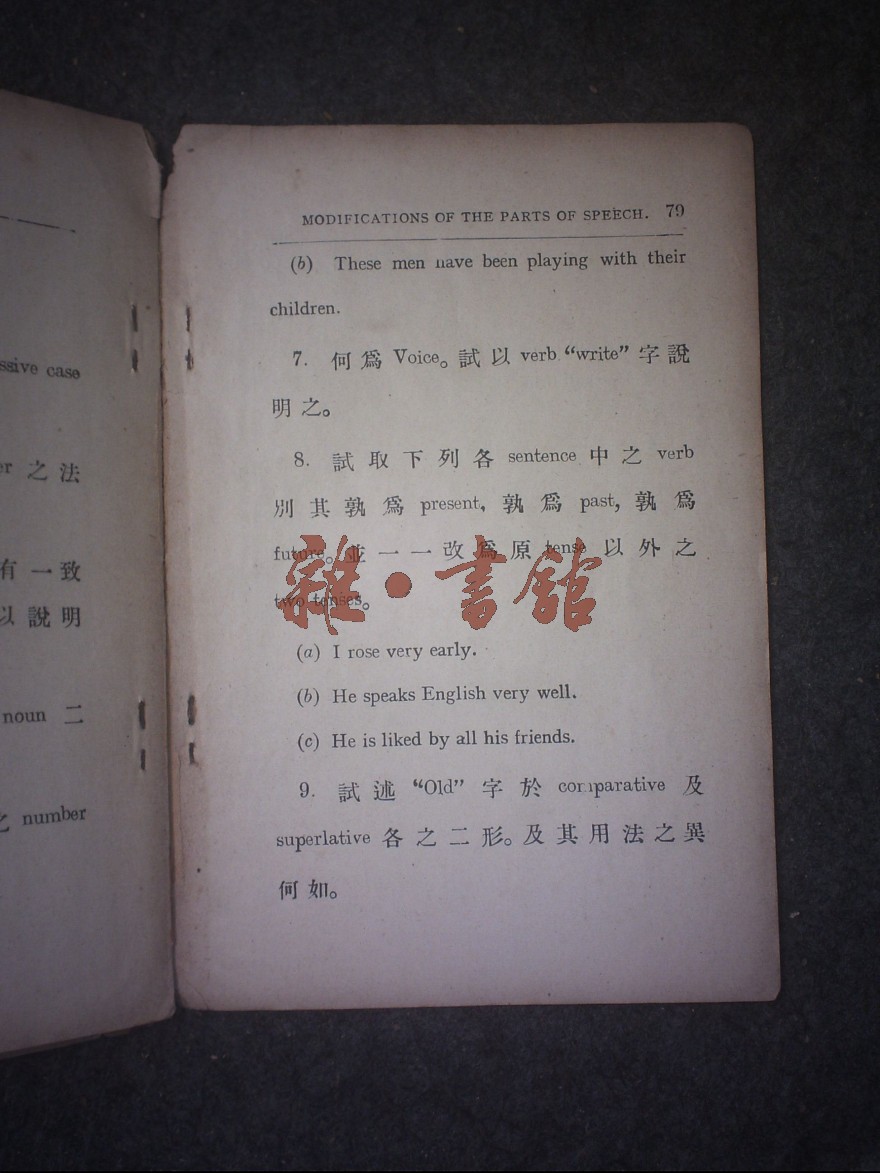 ssive case
之法
有一致
以說明
noun 二
之 number
MODIFICATIONS OF THE PARTS OF SPEECH. 79
(b) These men have been playing with their
children.
7. 何爲 Voice。試以 verb “write” 字說
明之。
8. 試取下列各 sentence 中之 verb
別其孰爲 present, 孰爲 past, 孰爲
future。並一一改爲原 tense 以外之
two tenses。
雜·書館
(a) I rose very early.
(b) He speaks English very well.
(c) He is liked by all his friends.
9. 試述 “Old” 字於 comparative 及
superlative 各之二形。及其用法之異
何如。